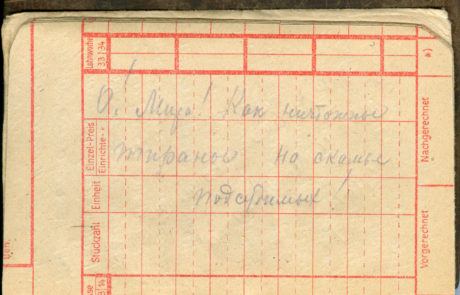 О! Мира! Как ничтожные
тираны на скамье
подсудимых!
Jahrwoche
33 34
Einzel-Preis
Einrichte-
Einheit
Stückzahl
Nachgerechnet
Vorgerechnet